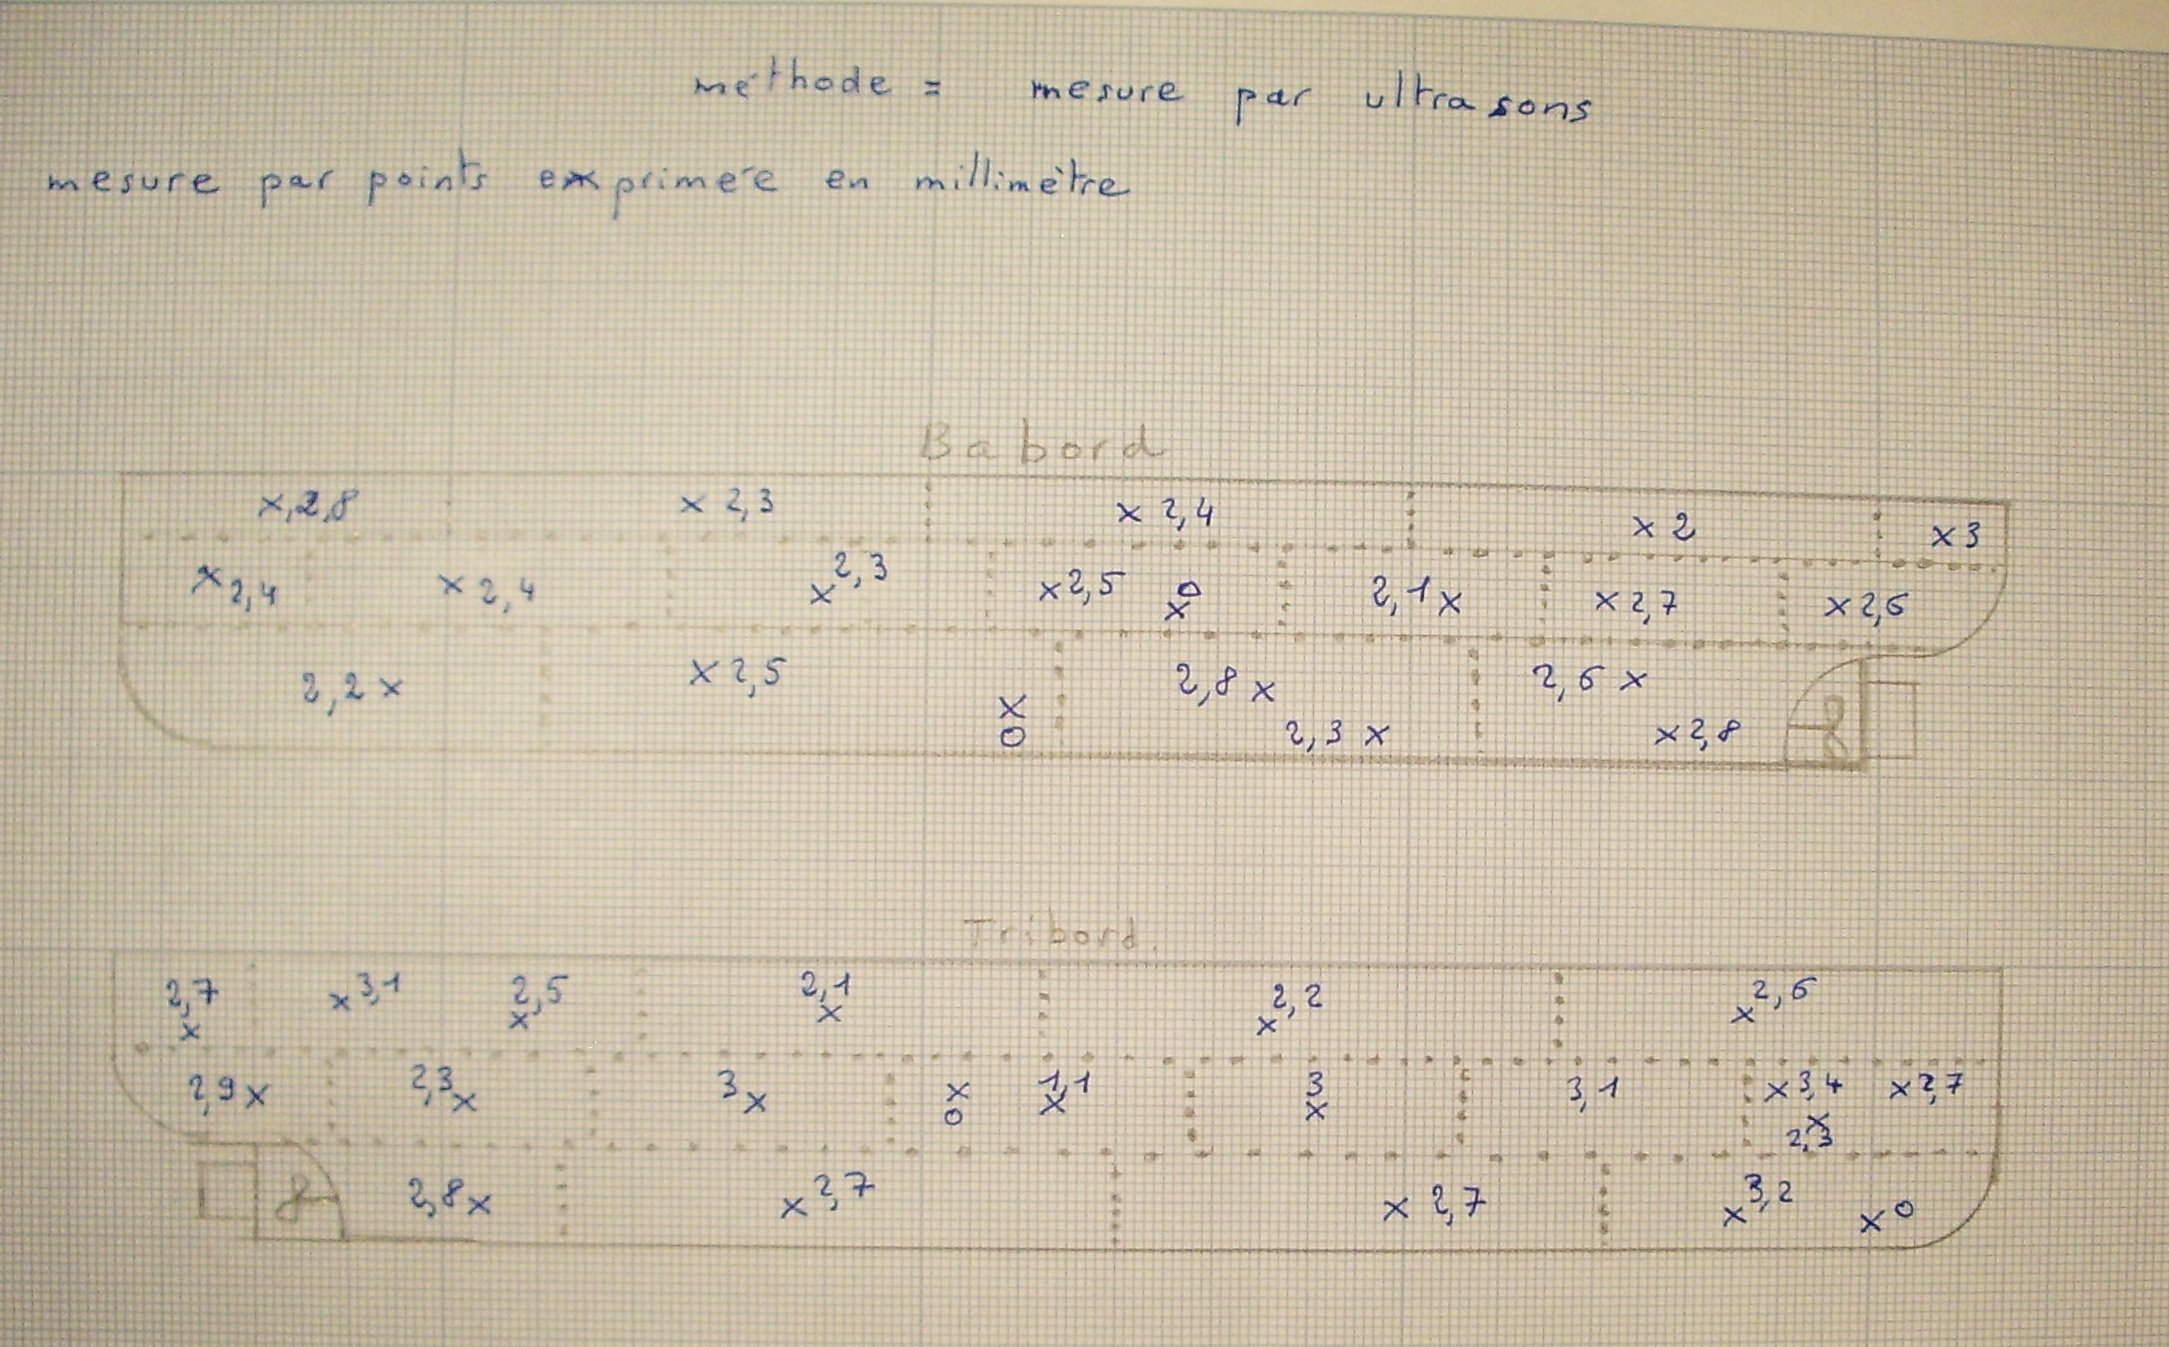 méthode = mesure par ultrasons
mesure par points exprimée en millimètre
Babord
x 2,8 x 2,3 x 2,4 x 2 x 3
x 2,4 x 2,4 x 2,3 x 2,5 x 0 2,1 x x 2,7 x 2,6
2,2 x x 2,5 x 0 2,8 x 2,6 x
2,3 x x 2,8
Tribord.
2,7 x x 3,1 2,5 x 2,1 x 2,2 x x 2,6
2,9 x 2,3 x 3 x x 0 1,1 x 3 x 3,1 x 3,4 x 2,7
x 2,3
2,8 x x 2,7 x 2,7 x 3,2 x 0